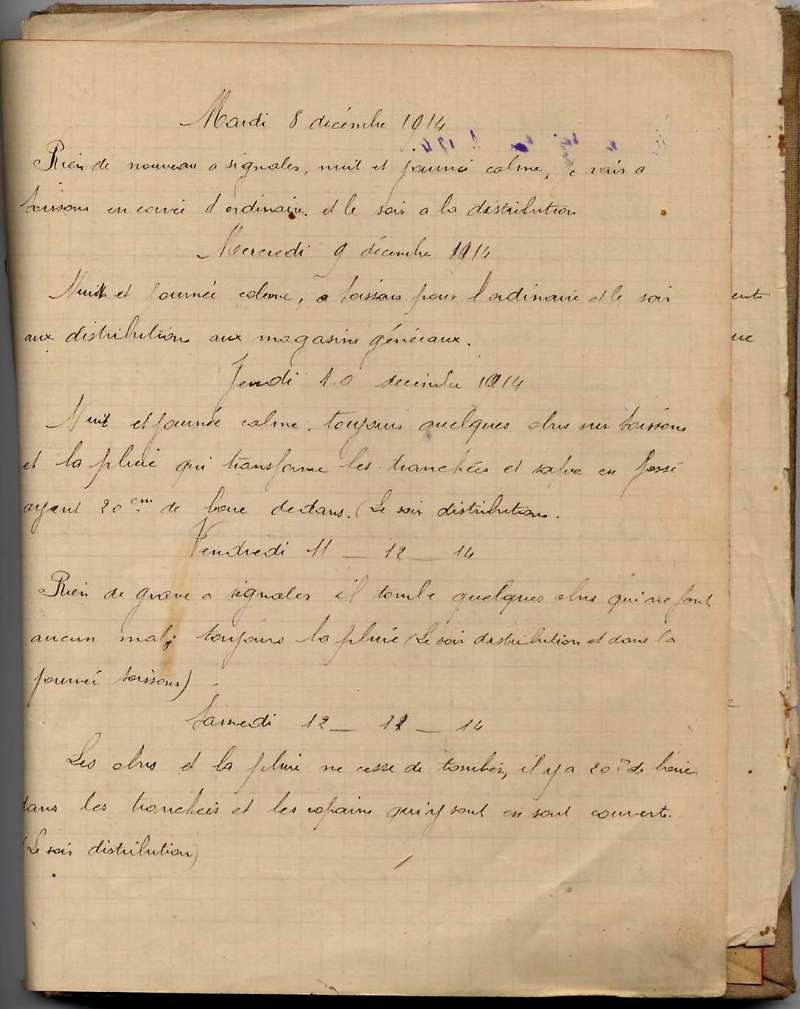 Mardi 8 décembre 1914
Rien de nouveau a signaler, nuit et journée calme, je vais a
Soissons en corvée d'ordinaire. et le soir a la distribution
Mercredi 9 décembre 1914
Nuit et Journée calme, a Soissons pour l'ordinaire et le soir
aux distributions aux magasins généraux.
Jeudi 10 decembre 1914
Nuit et journée calme. toujours quelques obus sur Soissons
et la pluie qui transforme les tranchées et sape en fossé
ayant 20 cm de boue dedans. (Le soir distribution.
Vendredi 11 _ 12 _ 14
Rien de grave a signaler il tombe quelques obus qui ne font
aucun mal, toujours la pluie (Le soir distribution et dans la
journée Soissons)
Samedi 12 _ 12 _ 14
Les obus et la pluie ne cesse de tomber, il y a 20 cm de boue
dans les tranchées et les copains qui y sont en sont couvert.
(Le soir distribution)